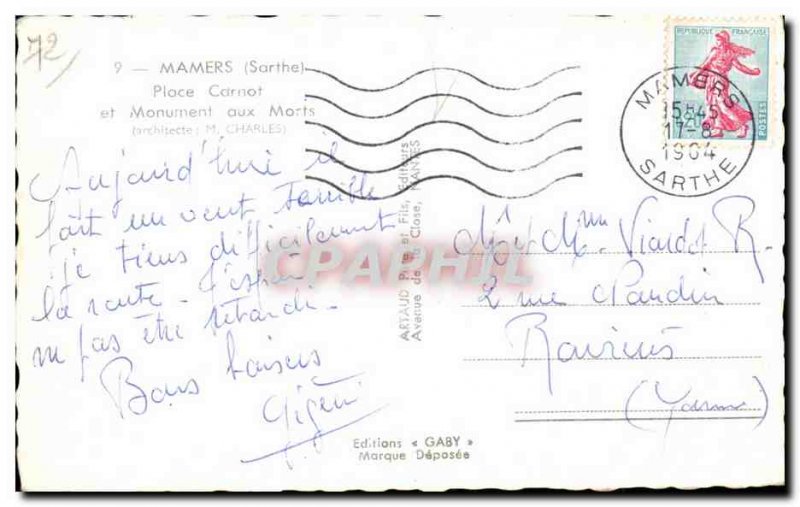 72
9 — MAMERS (Sarthe)
Place Carnot
et Monument aux Morts
(architecte : M. CHARLES)
Aujourd'hui il
fait un vent terrible
je tiens difficilement
la route - J'espère
pas être retardi.
Bons baisers
ARTAUD Père et Fils, Editeurs
Avenue de la Close, NANTES
CPARPHIL
REPUBLIQUE FRANÇAISE
POSTES
MAMERS
15H45
17-8
1964
SARTHE
Mr Mme Viardot R.
2 rue
(Yonne)
Editions « GABY »
Marque Déposée